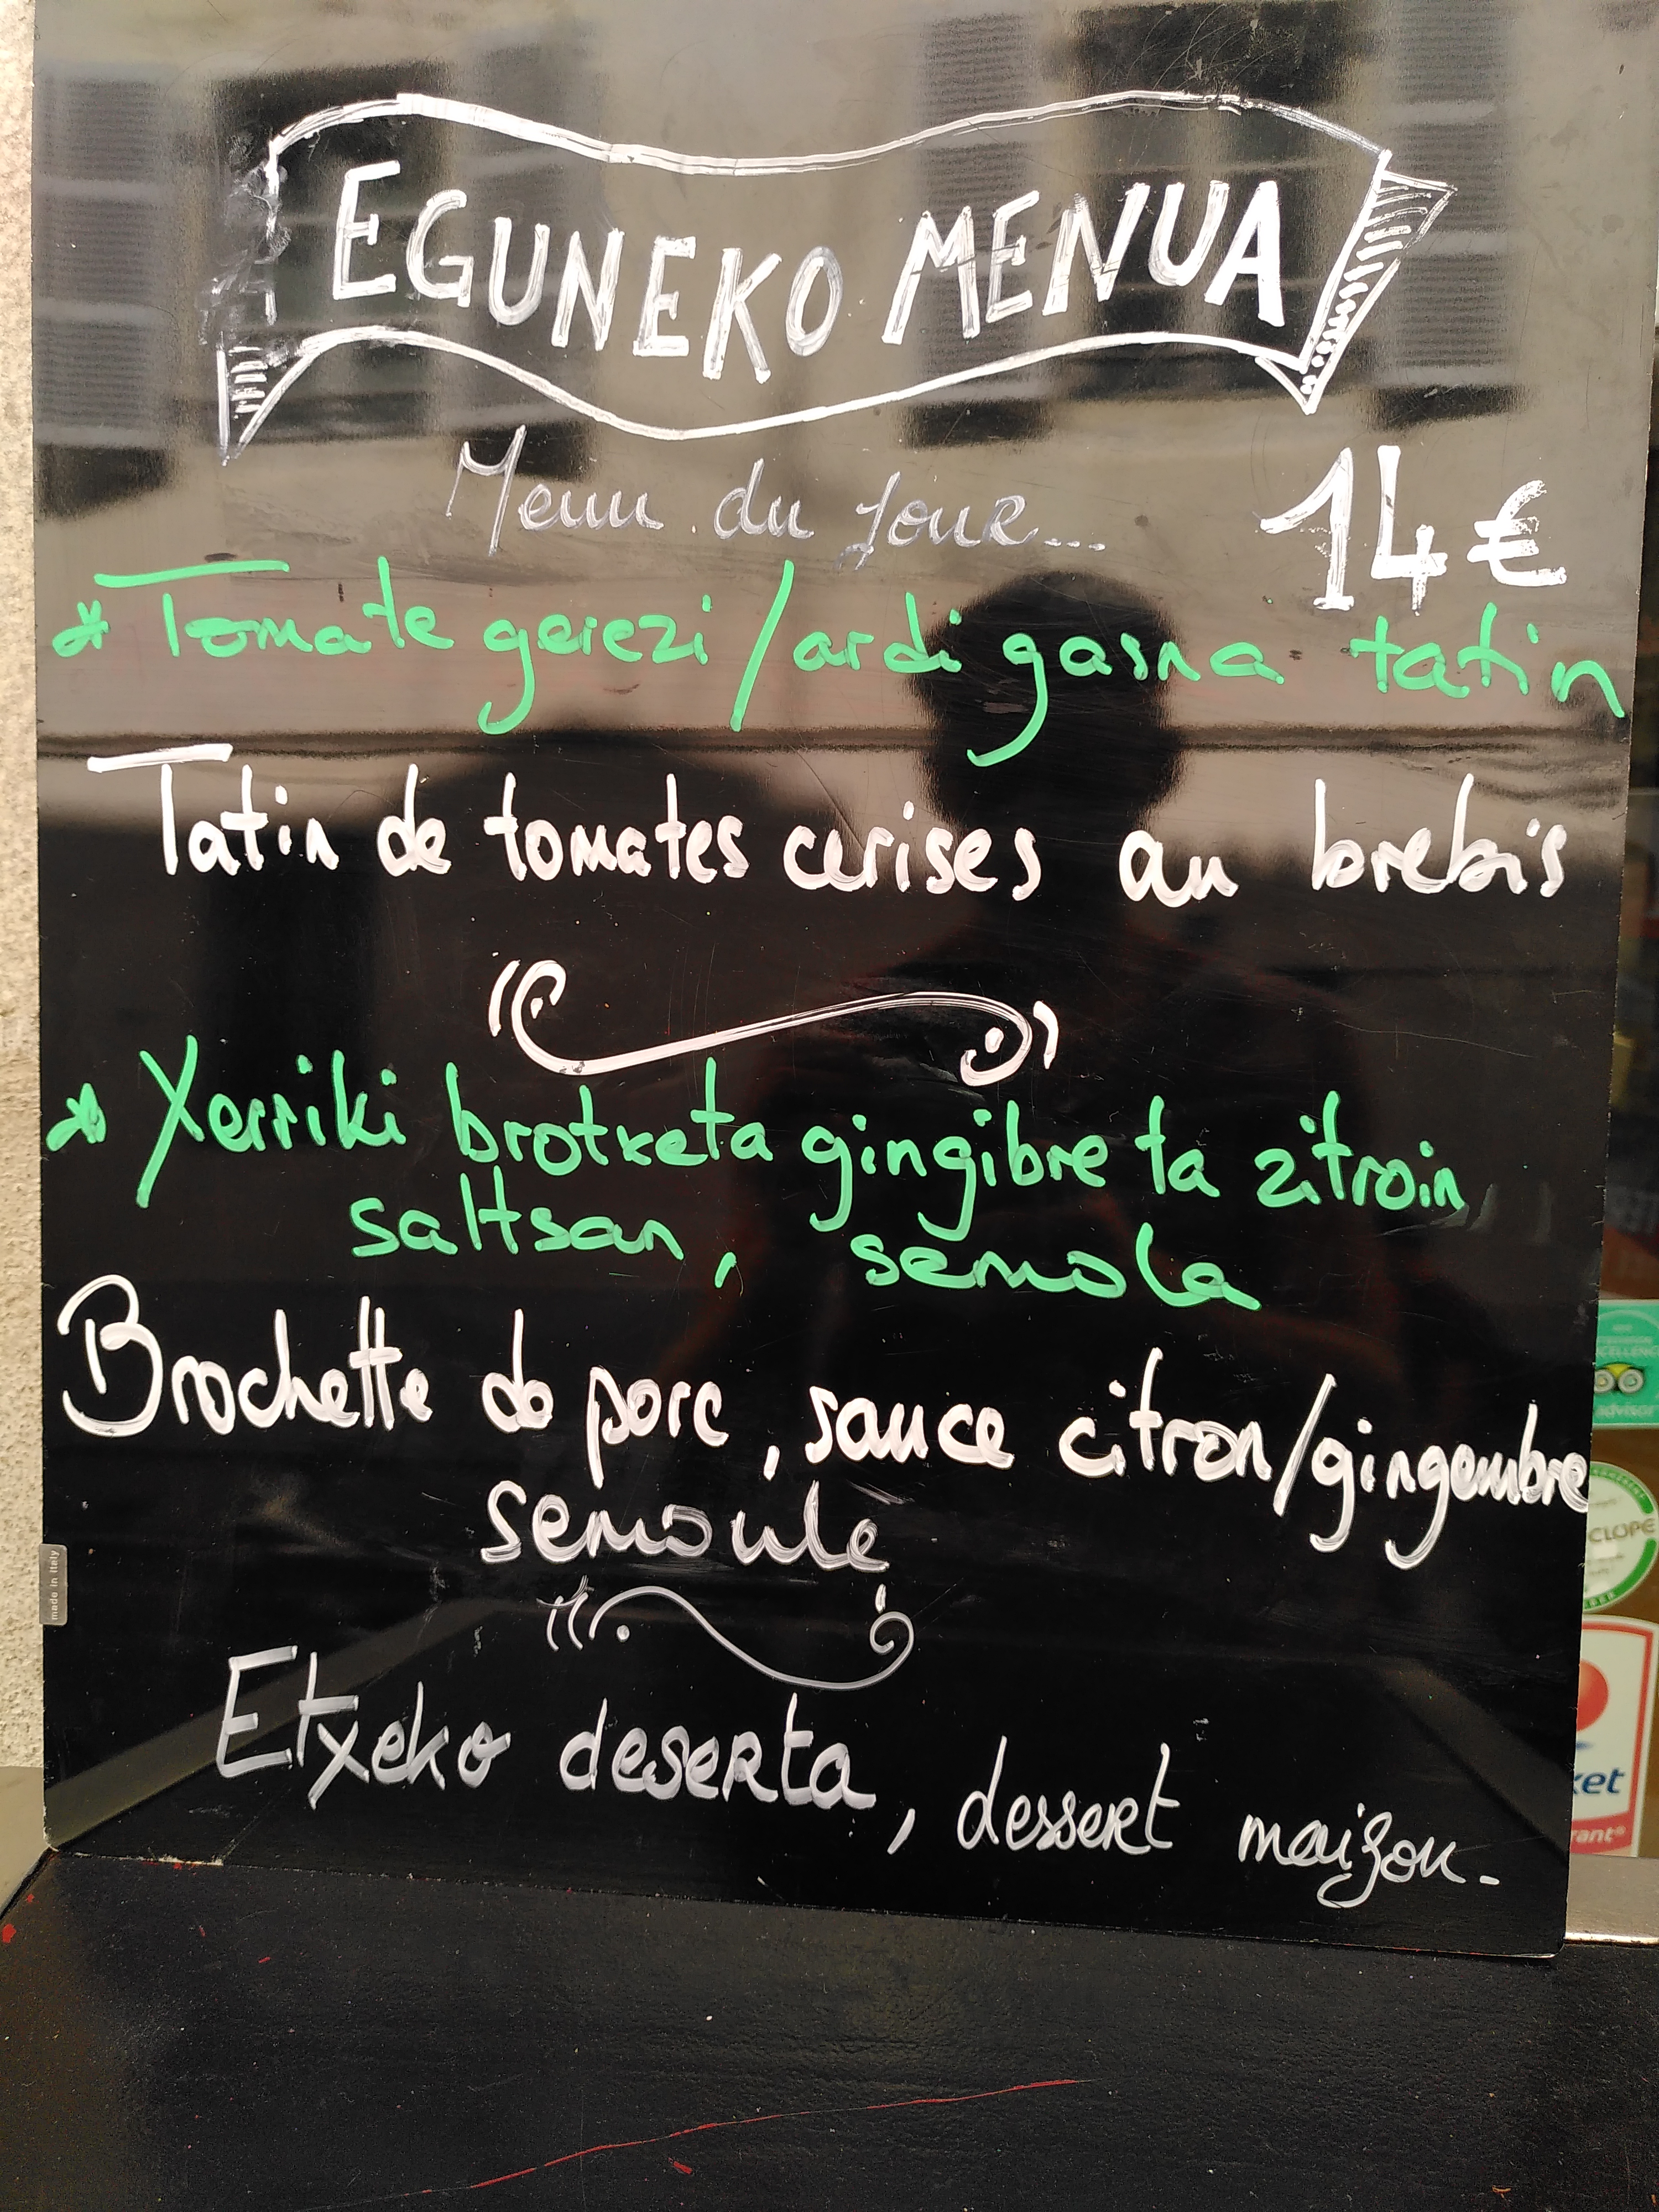 EGUNEKO MENUA
Menu du jour...
14€
* Tomate gerezi / ardi gasna tatin
Tatin de tomates cerises au brebis
* Xerriki brotxeta gingibre ta zitroin
saltsan, semola
Brochette de porc, sauce citron/gingembre
semoule
Etxeko deserta, dessert maison.
made in italy
CELLENC
advisor
CLOPE
ket
rant®